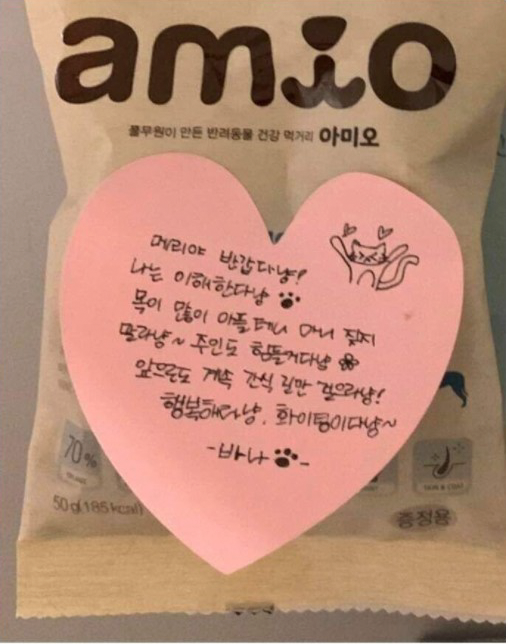 amio
풀무원이 만든 반려동물 건강 먹거리 아미오
메리야 반갑다냥!
나는 이해한다냥
목이 많이 아플테니 마니 짖지
말라냥~ 주인도 힘들거다냥
앞으로도 계속 간식 길만 걸으라냥!
행복해라냥. 화이팅이다냥~
-바나-
70%
50g(185kcal)
SKIN & COAT
증정용